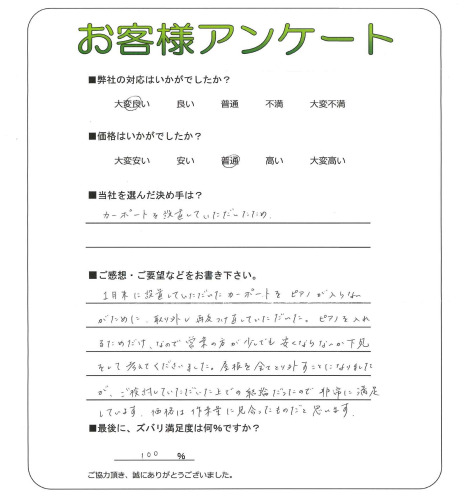 お客様アンケート
■弊社の対応はいかがでしたか？
大変良い　良い　普通　不満　大変不満
■価格はいかがでしたか？
大変安い　安い　普通　高い　大変高い
■当社を選んだ決め手は？
カーポートを設置していただいたため.
■ご感想・ご要望などをお書き下さい。
1月末に設置していただいたカーポートをピアノが入らない
がために、取り外し再度つけ直していただいた。ピアノを入れ
るためだけ、なので営業の方が少しでも安くならないか下見
をして考えてくださいました。屋根を全てとり外すことになりました
が、ご検討していただいた上での結論だったので非常に満足
しています。価格は作業量に見合ったものだと思います.
■最後に、ズバリ満足度は何%ですか？
100 %
ご協力頂き、誠にありがとうございました。